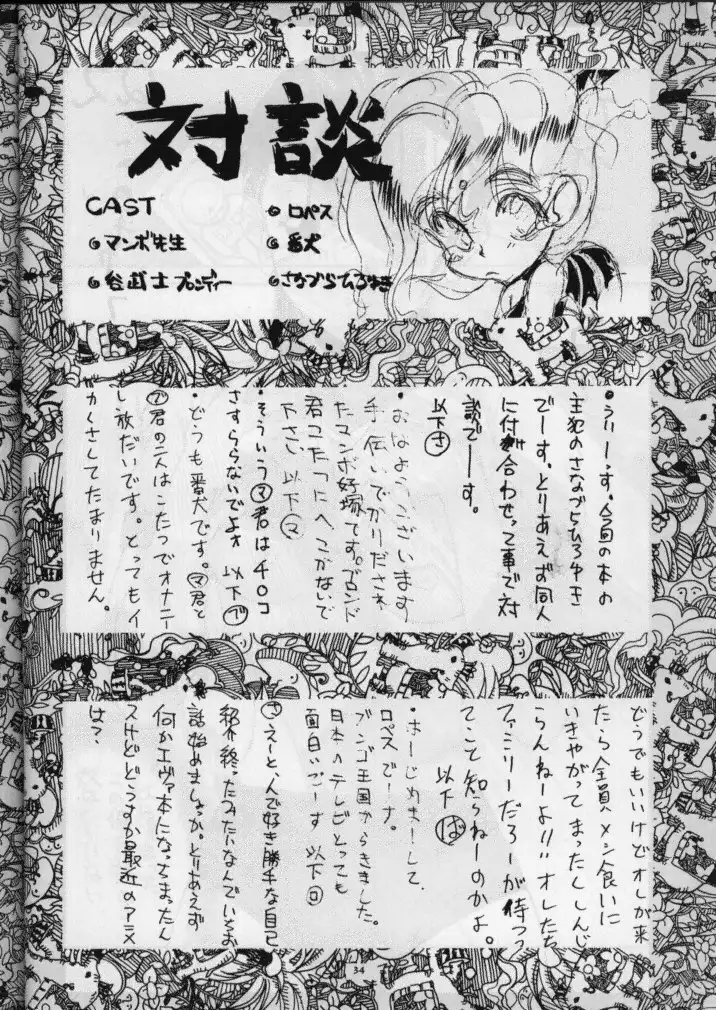 対談
CAST
マンボ先生
谷武士ブロンディー
ロペス
番犬
さなづらひろゆき
・うぃーっす、今回の本の
主犯のさなづらひろゆき
でーす、とりあえず同人
に付き合わせって事で対
談でーす。
以下さ
・おはようございます
手伝いでかりだされ
たマンボ好塚です。ブロンド
君こたつにへこかないで
下さい 以下マ
・そういうマ君はチロコ
さすらないでよォ 以下ブ
・どうも番犬です。マ君と
ブ君の二人はこたつでオナニー
し放だいです。とってもイ
カくさくてたまりません。
どうでもいいけどオレが来
たら全員メシ食いに
いきやがってまったくしんじ
らんねーよ!!オレたち
ファミリーだろーが待つっ
てこと知らねーのかよ。
以下ば
・はーじめまーして、
ロペスでーす。
ブンゴ王国からきました。
日本のテレビとっても
面白いでーす 以下ロ
さ えーと、んで好き勝手な自己
紹介終ったみたいなんでいちお
話始めましょっか。とりあえず
何かエヴァ本になってまったん
スけどどうスか最近のアニメ
は?
34